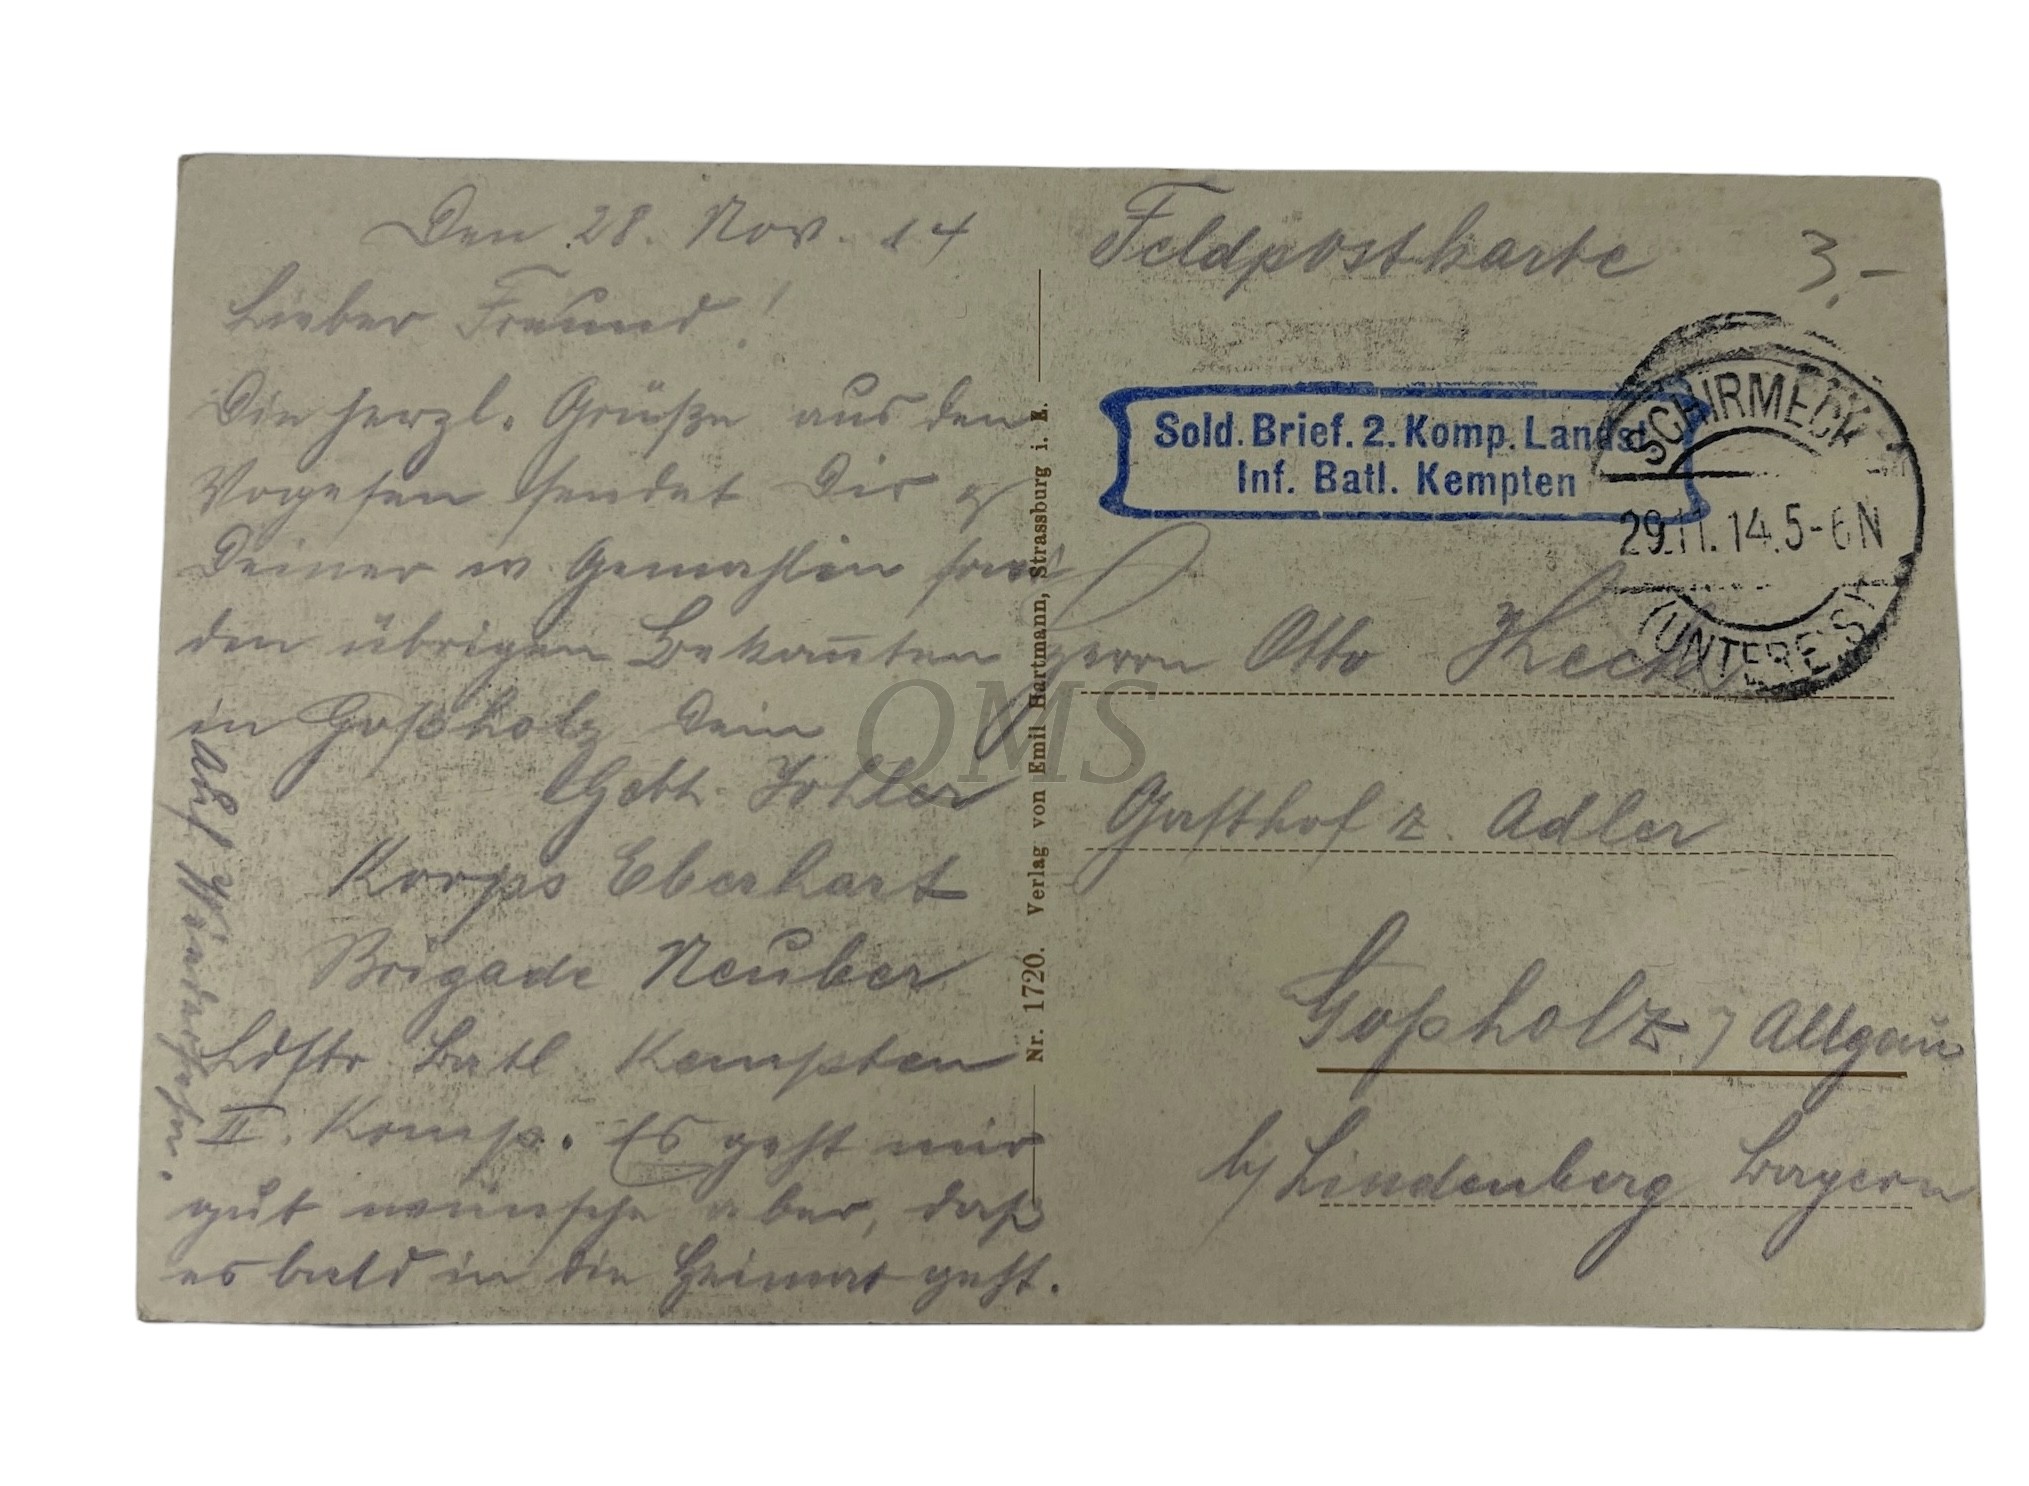 Den 28. Nov. 14
Lieber Freund!
Die herzl. Grüße aus den
Vogesen sendet Dir &
Deiner w. Gemahlin sowie
den übrigen Bekannten
in Goßholz Dein
Gebh. Johler
Korps Eberhart
Brigade Neuber
Ldstr Batl Kempten
II. Komp. Es geht mir
gut wünsche aber, daß
es bald in die Heimat geht.
Auf Wiedersehn.
Nr. 1720. Verlag von Emil Hartmann, Strassburg i. E.
Feldpostkarte
3,-
Sold. Brief. 2. Komp. Landst
Inf. Batl. Kempten
SCHIRMECK
29.11.14.5-6N
(UNTERELS)
Herrn Otto
Gasthof z. Adler
Goßholz / Allgäu
b/ Lindenberg Bayern
QMS